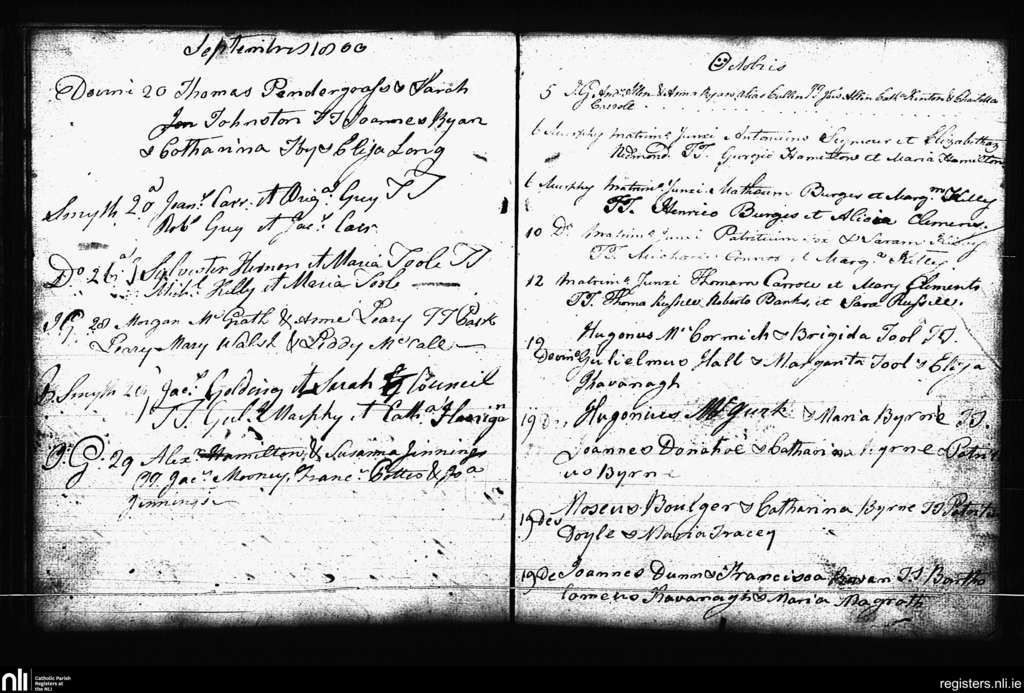 Septembris 1800
Devini 20 Thomas Pendergrass & Sarah
Johnston TT Joannes Ryan
& Catharina Ivy & Eliza Long
Smyth 20 Joan. Carr et Brig. Guy TT
Rob. Guy et Jac. Carr
Do 26 Sylvester Hernon et Maria Toole TT
Mich. Kelly et Maria Toole
JG 28 Morgan McGrath & Anne Leary TT Pat
Leary Mary Walsh & Biddy McCalle
Smyth 29 Jac. Golding et Sarah Council
TT. Gul. Murphy et Cath.
J.G. 29 Alex Hamilton & Susanna Jinnings
TT Jac. Mooney, Franc. & Jo
Jennings
Octobris
5 J.G. & Anne alias Cullen TT Allen Cath. & Charlotta
Carrole
6 Murphy Matrim. Junxi Antonium Seymour et Elizabetham
Redmond TT. Georgio Hamilton et Maria Hamilton
6 Murphy Matrim. Junxi Matheum Burges et Marg.m Kelly
TT. Henrico Burges et Alicia Clemens.
10 Do Matrim. Junxi Patritium & Saram
TT. Michaele Connor et Marg.a Kelly.
12 Matrim. Junxi Thomam Carrole et Mary Clements
TT. Thoma Russele, Roberto Banks, et Sara Russele.
19 Hugonus McCormick & Brigida Tool TT.
Devine Gulielmus Hall & Margarita Tool & Eliza
Khavanagh
19 De Hugonius McGurk & Maria Byrne TT.
Joannes Donahoe & Catharina Byrne Patri
us Byrne
19 Dev Moseus Boulger & Catharina Byrne TT Patritus
Doyle & Maria Tracey
19 De Joannes Dunn & Francisca Rowan TT Barth
lomeus Kavanagh & Maria Magrath
nli
Catholic Parish
Registers at
the NLI
registers.nli.ie